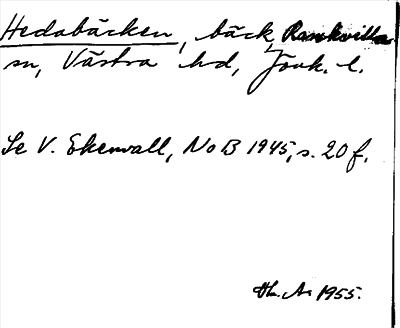 Hedabäcken, bäck, Ramkvilla
sn, Västra hd, Jönk. l.
Se V. Ekenvall, NoB 1945, s. 20 f.
1955.